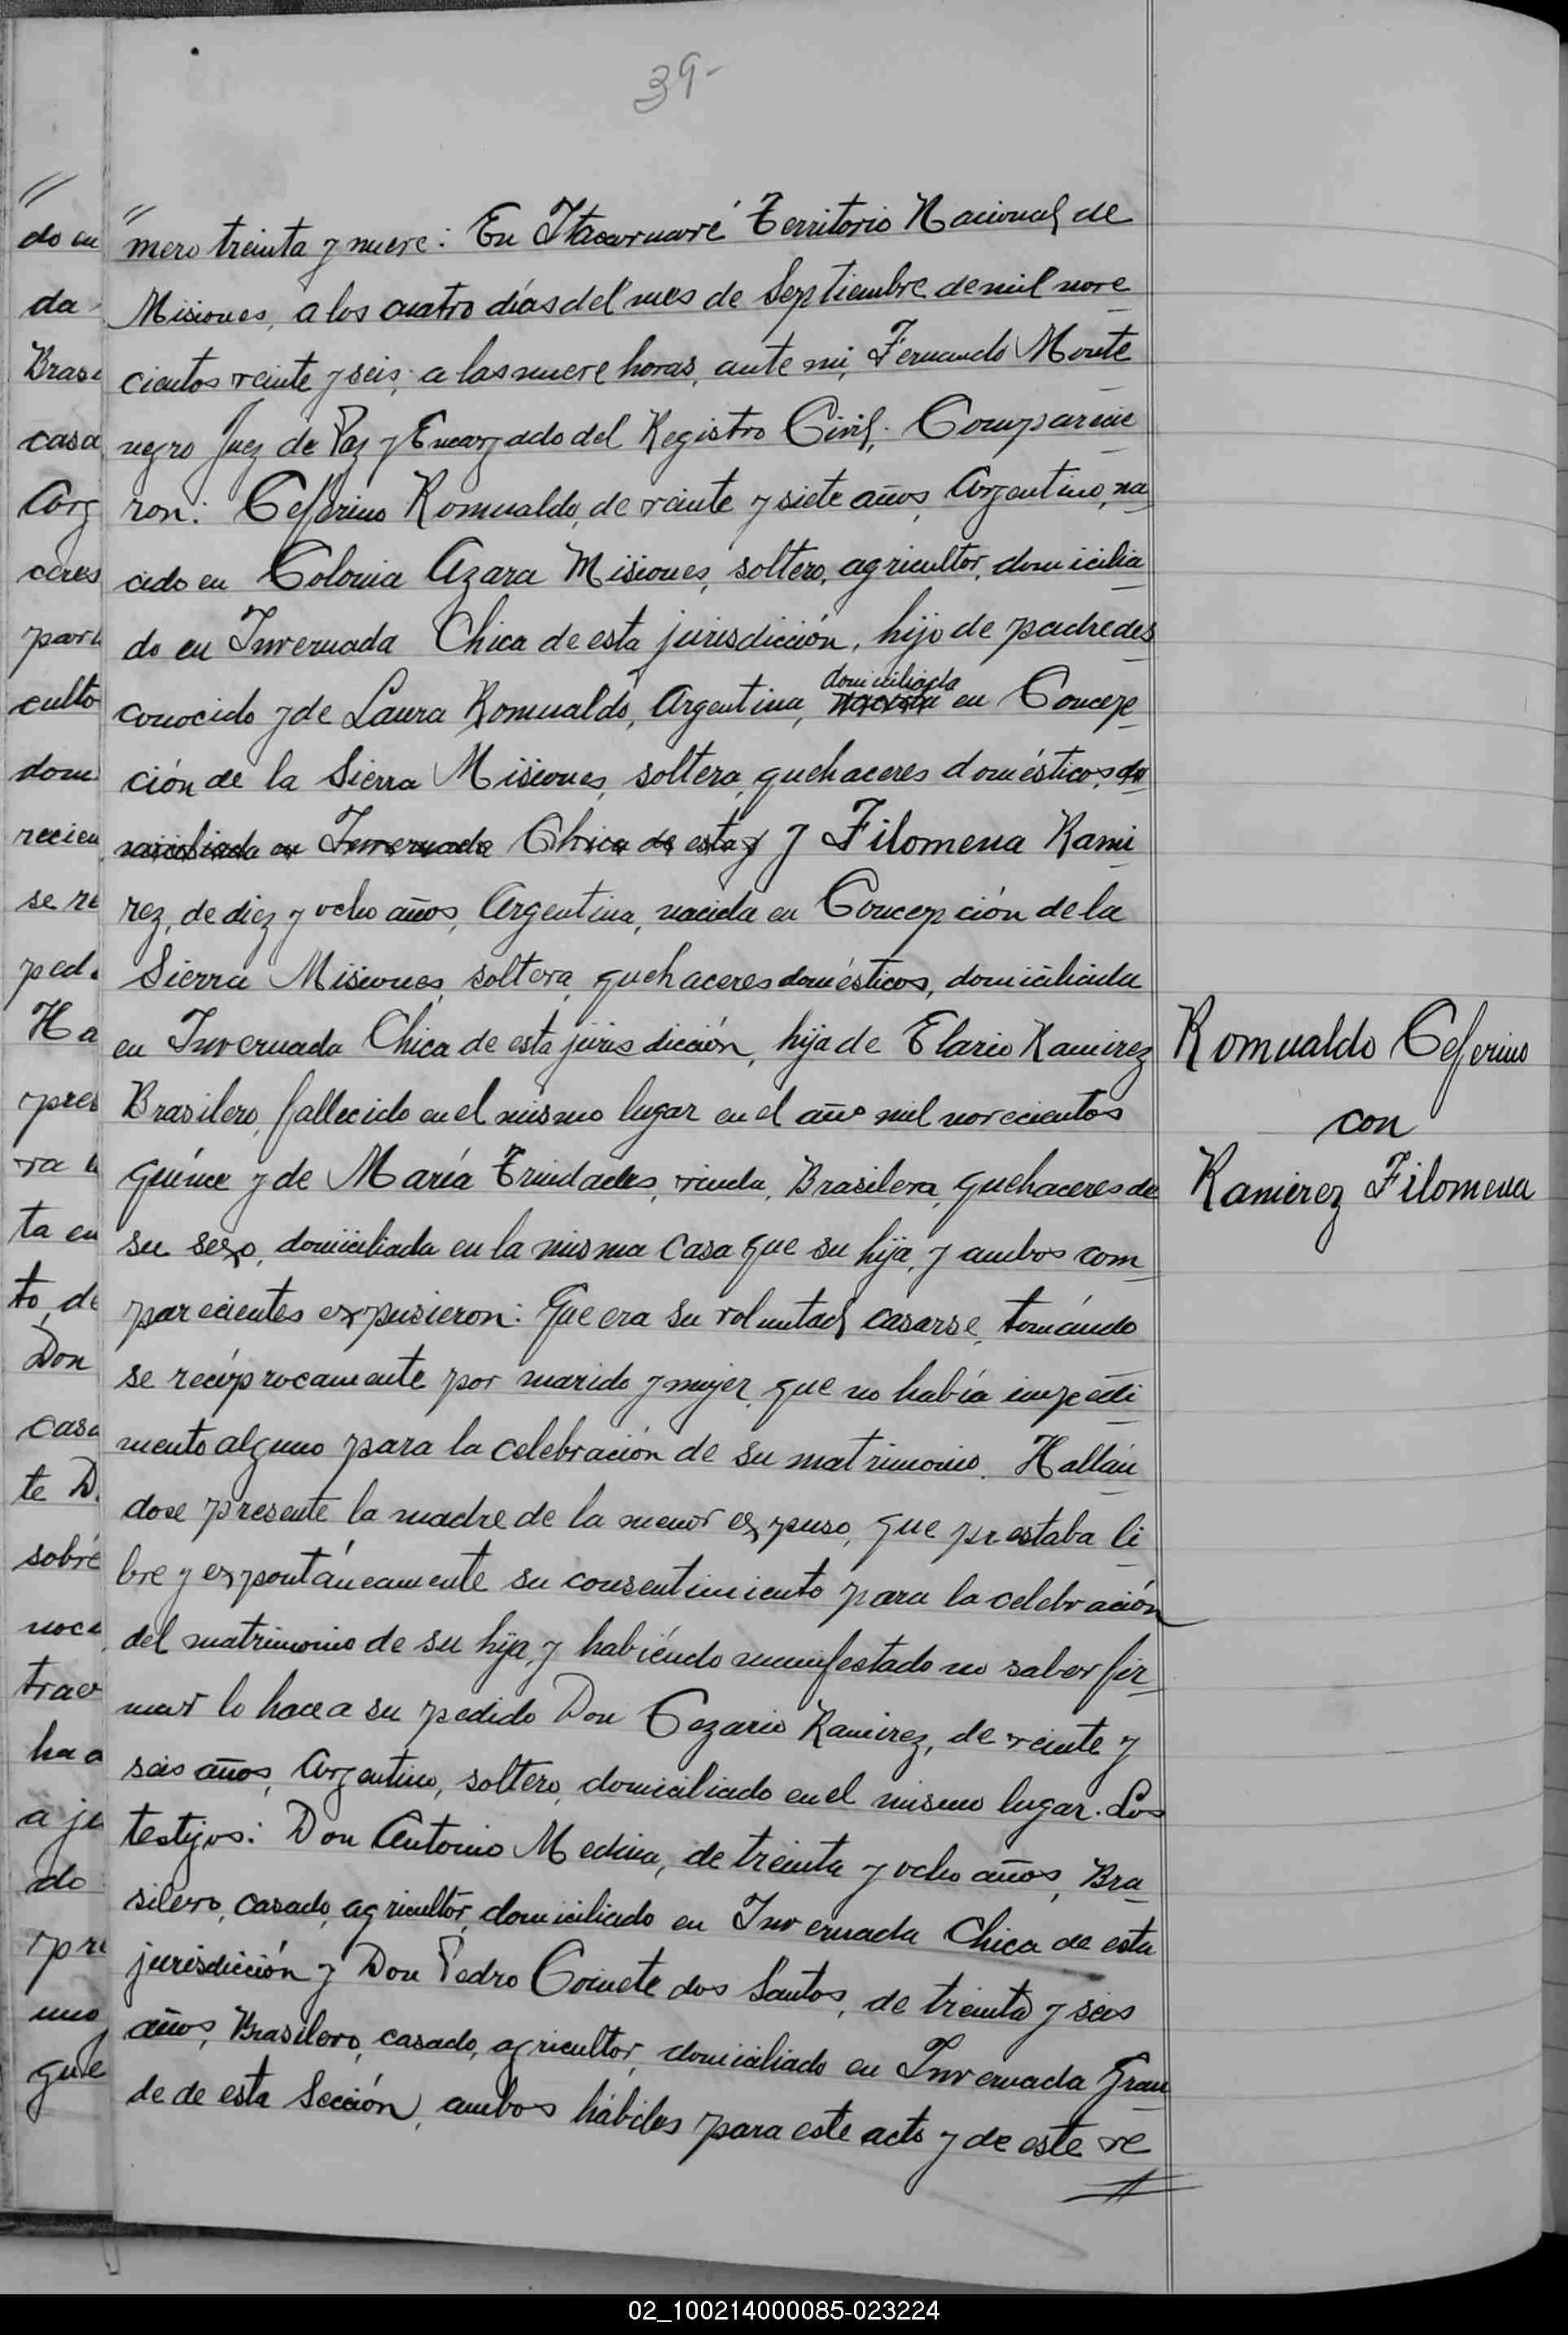 39-
"
mero treinta y nueve: En Itacaruaré Territorio Nacional de
Misiones, a los cuatro días del mes de Septiembre de mil nove
cientos veinte y seis, a las nueve horas, ante mi, Fernando Monte
negro Juez de Paz y Encargado del Registro Civil; Comparecie
ron: Ceferino Romualdo, de veinte y siete años, Argentino, na
cido en Colonia Azara Misiones, soltero, agricultor, domicilia
do en Invernada Chica de esta jurisdicción, hijo de padre des
conocido y de Laura Romualdo, Argentina, nacida domiciliada en Concep
ción de la Sierra Misiones, soltera, quehaceres domésticos, do
miciliada en Invernada Chica de esta j y Filomena Rami
rez, de diez y ocho años, Argentina, nacida en Concepción de la
Sierra Misiones, soltera, quehaceres domésticos, domiciliada
en Invernada Chica de esta jurisdicción, hija de Elario Ramirez
Brasilero, fallecido en el mismo lugar en el año mil novecientos
quince y de María Trindades, viuda, Brasilera, quehaceres de
su sexo, domiciliada en la misma casa que su hija, y ambos com
parecientes expusieron: Que era su voluntad casarse, tomándo
se recíprocamente por marido y mujer, que no había impedi
mento alguno para la celebración de su matrimonio. Hallán
dose presente la madre de la menor expuso, que prestaba li
bre y expontáneamente su consentimiento para la celebración
del matrimonio de su hija, y habiéndo manifestado no saber fir
mar lo hace a su pedido Don Cezario Ramirez, de veinte y
seis años, Argentino, soltero, domiciliado en el mismo lugar. Los
testijos: Don Antonio Medina, de treinta y ocho años, Bra
silero, casado, agricultor, domiciliado en Invernada Chica de esta
jurisdicción y Don Pedro Cornete dos Santos, de treinta y seis
años, Brasilero, casado, agricultor, domiciliado en Invernada Gran
de de esta Sección, ambos hábiles para este acto y de este ve
Romualdo Ceferino
con
Ramirez Filomena
02_100214000085-023224